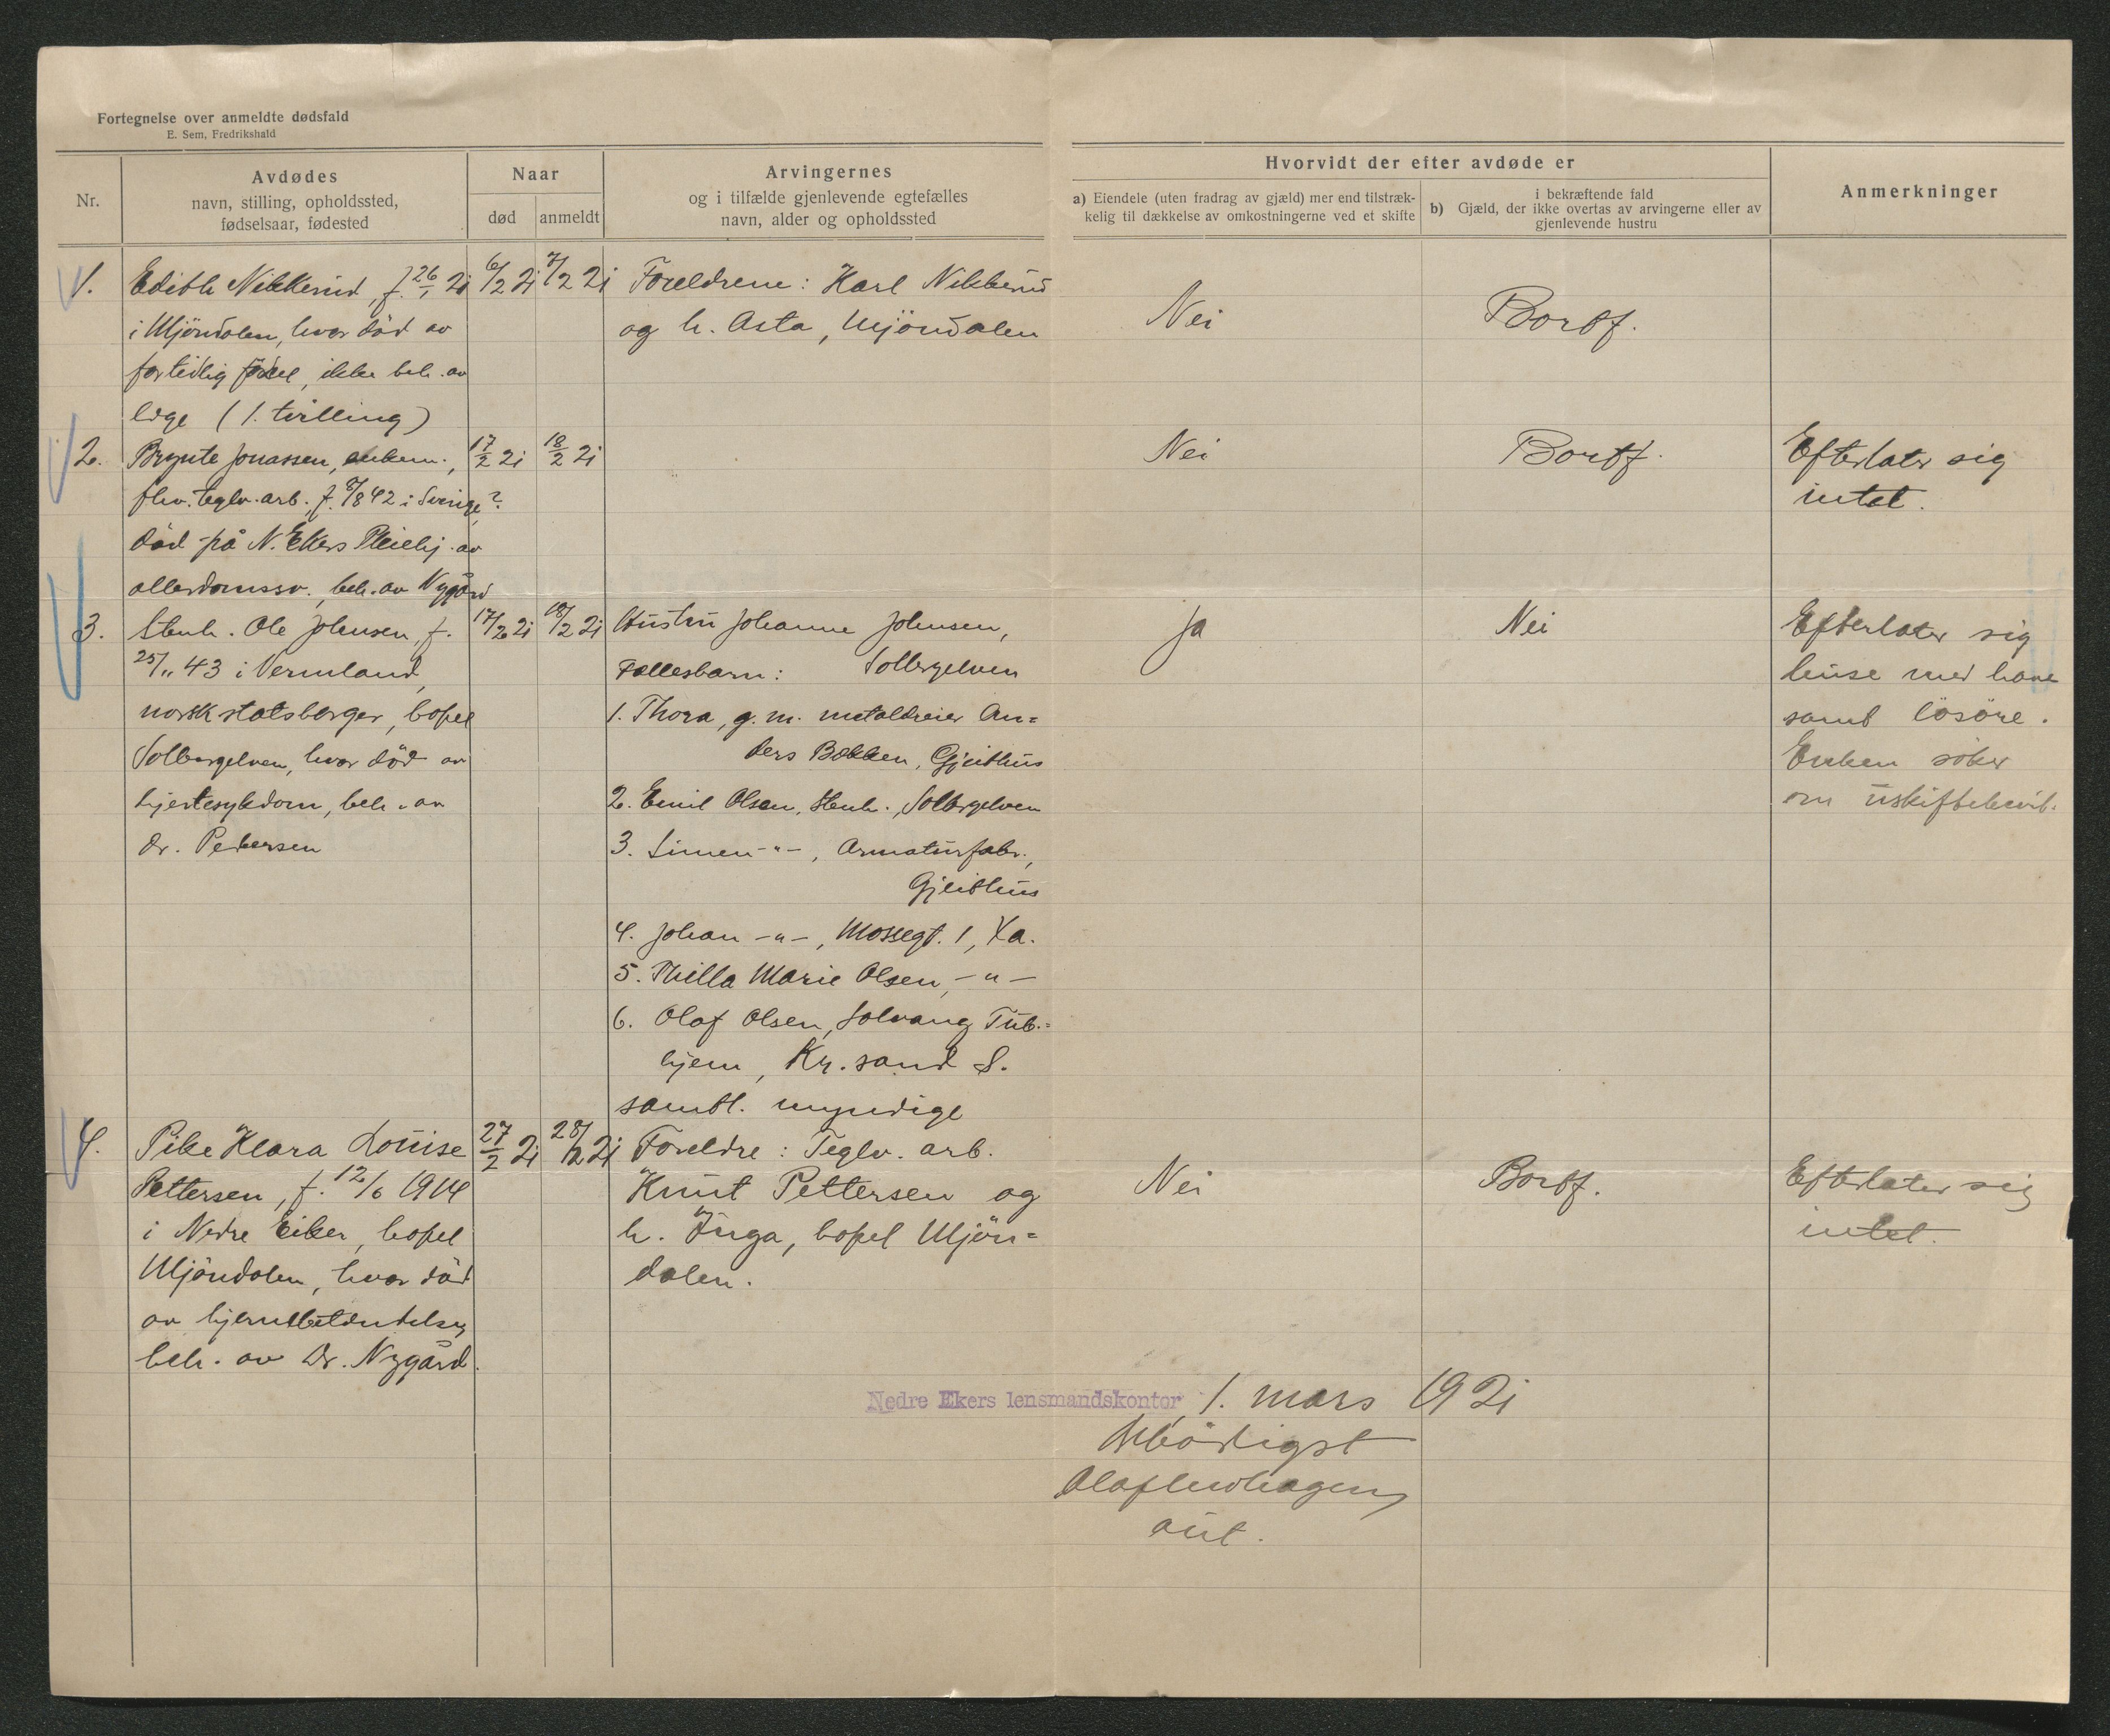 Fortegnelse over anmeldte dødsfald
E. Sem, Fredrikshald
Nr.
Avdødes
navn, stilling, opholdssted,
fødselsaar, fødested
Naar
død
anmeldt
Arvingernes
og i tilfælde gjenlevende egtefælles
navn, alder og opholdssted
Hvorvidt der efter avdøde er
a) Eiendele (uten fradrag av gjæld) mer end tilstræk-
kelig til dækkelse av omkostningerne ved et skifte
i bekræftende fald
b) Gjæld, der ikke overtas av arvingerne eller av
gjenlevende hustru
Anmerkninger
1.
Edith Nikkerud, f. 26/1 21
i Mjöndalen, hvor död av
for tidlig födsel, ikke beh. av
læge (1. tvilling)
6/2 21
7/2 21
Foreldrene: Karl Nikkerud
og h. Asta, Mjöndalen
Nei
Bortf.
2.
Brynte Jonassen, enkem.,
fhv. teglv. arb., f. 8/8 42 i Sverige?
död på N. Ekers Pleiehj. av
alderdomssv., beh. av Nygård
17/2 21
18/2 21
Nei
Bortf.
Efterlater sig
intet.
3.
Stenh. Ole Johnsen, f.
25/11 43 i Vermland,
norsk statsborger, bopel
Solbergelven, hvor död av
hjertesykdom, beh. av
dr. Pedersen
17/2 21
18/2 21
Hustru Johanne Johnsen,
Solbergelven
Fællesbarn:
1. Thora, g. m. metaldreier An=
ders Bakken, Gjeithus
2. Emil Olsen, Stenh., Solbergelven
3. Simen -"-, Armaturfabr.,
Gjeithus
4. Johan -"-, Mossegt. 1, Xa.
5. Thilla Marie Olsen, -"-
6. Olaf Olsen, Solvang Tub.=
hjem, Kr.sand S.
samtl. myndige
Ja
Nei
Efterlater sig
huse med have
samt lösöre.
Enken söker
om uskiftebevil.
4.
Pike Klara Louise
Pettersen, f. 12/6 1914
i Nedre Eiker, bopel
Mjöndalen, hvor död
av hjernebetændelse,
beh. av Dr. Nygård.
27/2 21
28/2 21
Foreldre: Teglv. arb.
Knut Pettersen og
h. Inga, bopel Mjön=
dalen.
Nei
Bortf.
Efterlater sig
intet.
Nedre Ekers lensmandskontor, 1. mars 1921
Ærbödigst
aut.